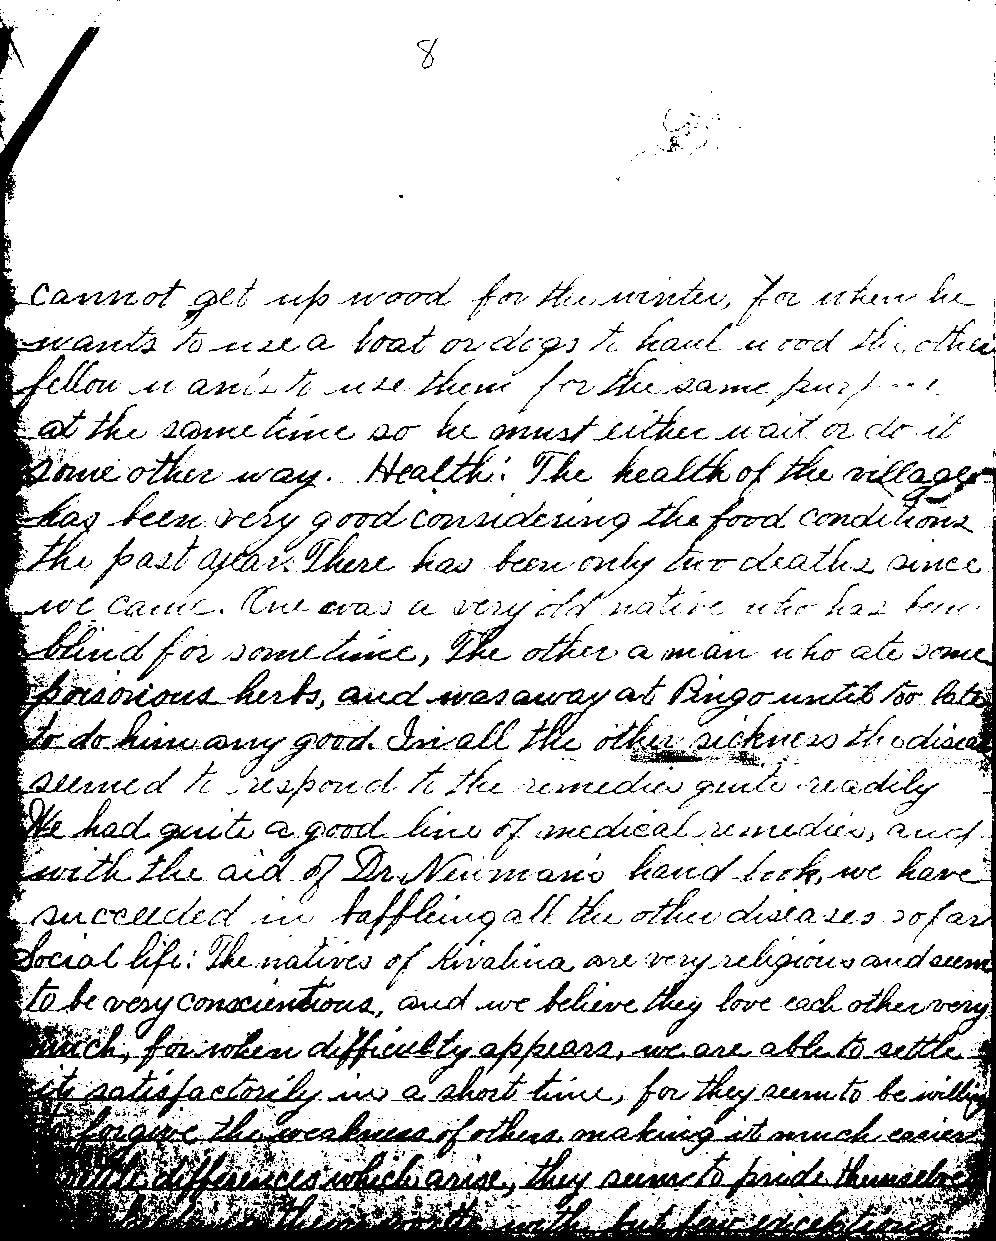 8
cannot get up wood for the winter, for when he
wants to use a boat or dogs to haul wood the other
fellow wants to use them for the same purpose
at the sametime so he must either wait or do it
some other way. Health: The health of the village
has been very good considering the food conditions
the past year. There has been only two deaths since
we came. One was a very old native who has been
blind for sometime, The other a man who ate some
poisonous herbs, and was away at Pingo until too late
to do him any good. In all the other sickness the disease
seemed to respond to the remedies quite readily
We had quite a good line of medical remedies, and
with the aid of Dr. Newman's hand book, we have
succeeded in baffleing all the other diseases so far
Social life: The natives of Kivalina are very religious and seem
to be very conscientious, and we believe they love each other very
much, for when difficulty appears, we are able to settle
it satisfactorily in a short time, for they seem to be willing
to forgive the weakness of others making it much easier
differences which arise, they seem to pride themselves
with but few exceptions.